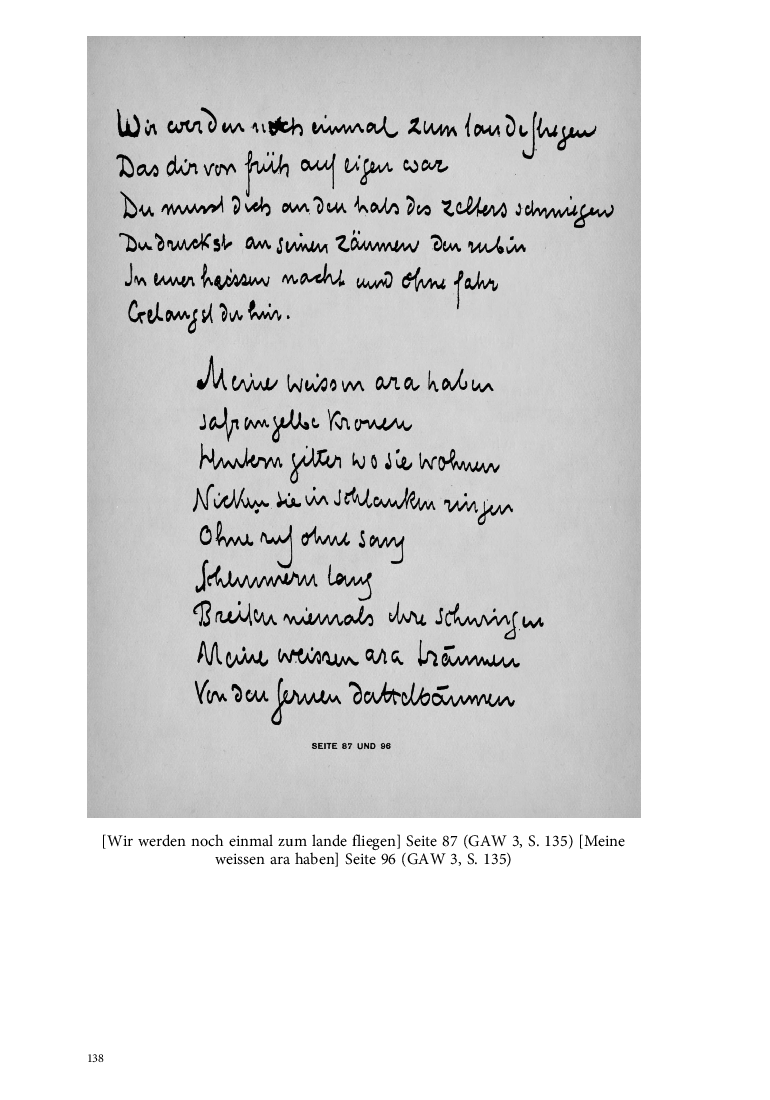 Wir werden noch einmal zum lande fliegen
Das dir von früh auf eigen war
Du musst dich an den hals des zelters schmiegen
Du druckst an seinen zäumen den rubin
In einer heissen nacht und ohne fahr
Gelangst du hin.
Meine weissen ara haben
safrangelbe kronen
Hinterm gitter wo sie wohnen
Nicken sie in schlanken ringen
Ohne ruf ohne sang
Schlummern lang
Breiten niemals ihre schwingen
Meine weissen ara träumen
Von den fernen dattelbäumen
SEITE 87 UND 96
[Wir werden noch einmal zum lande fliegen] Seite 87 (GAW 3, S. 135) [Meine
weissen ara haben] Seite 96 (GAW 3, S. 135)
138